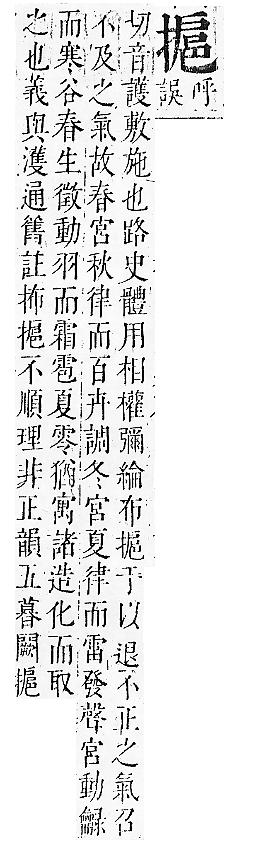 摢
呼
誤
切音護敷施也路史體用相權彌綸布摢于以退不正之氣召
不及之氣故春宮秋律而百卉調冬宮夏律而雷發聲宮動龣
而寒谷春生徵動羽而霜雹夏零猶寓諸造化而取
之也義與濩通舊註抪摢不順理非正韻五暮闕摢